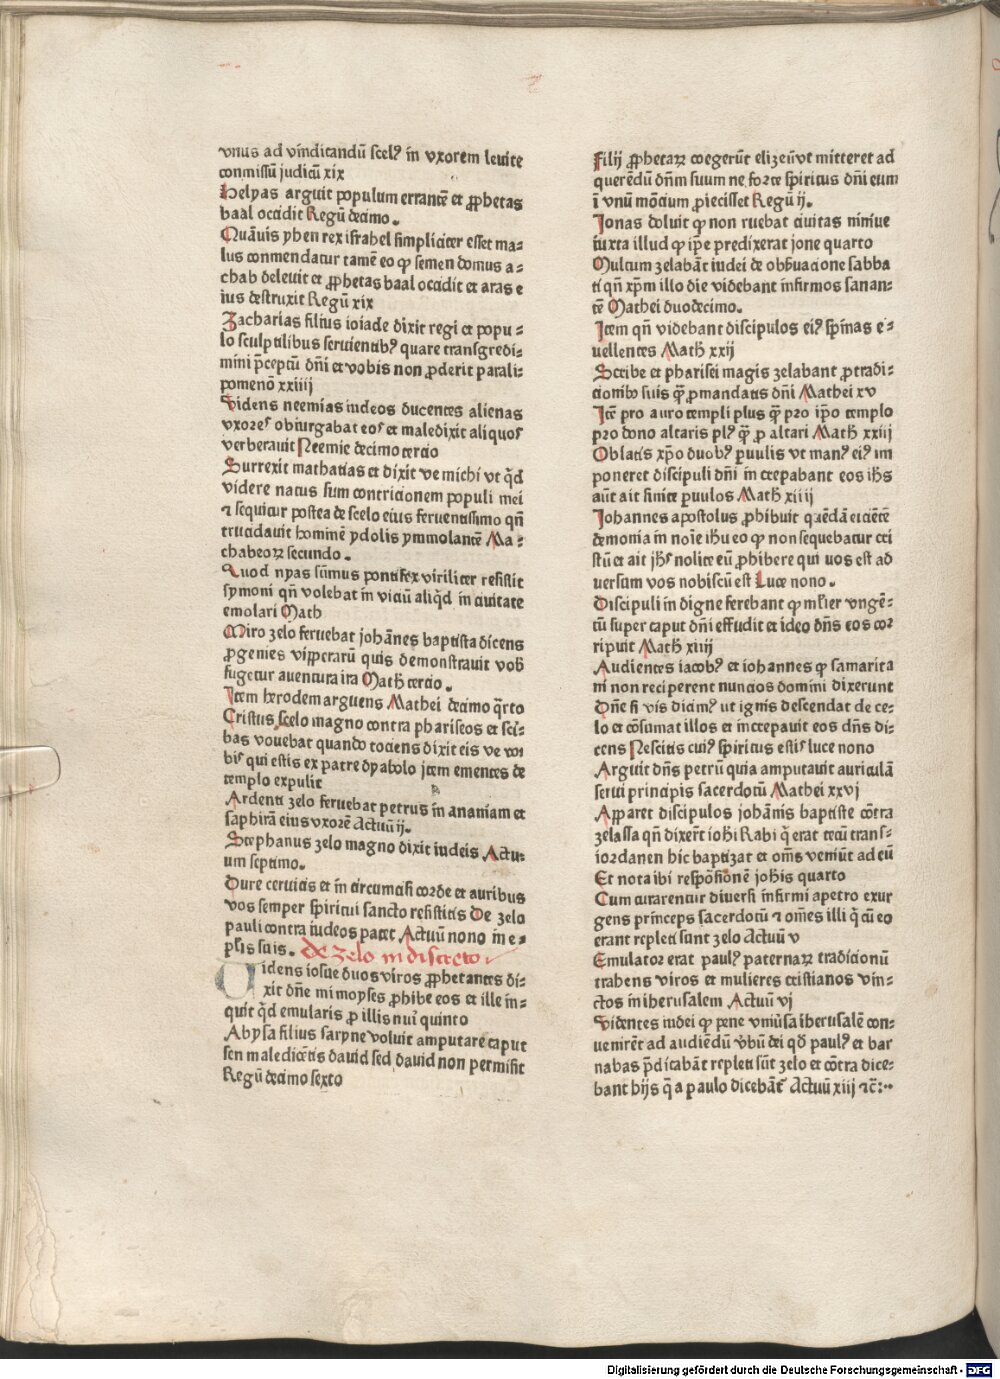 vnus ad vindicandū scelꝰ in vxorem leuite
conmissū judicū xix
Helyas arguit populum errantē et ꝓphetas
baal occidit Regū decimo.
Quāuis yhen rex israhel simpliciter esset ma⸗
lus conmendatur tamē eo ꝙ semen domus a⸗
chab deleuit et ꝓphetas baal occidit et aras e
ius destruxit Regū xix
Zacharias filius ioiade dixit regi et popu⸗
lo sculptilibus seruientibꝰ quare transgredi⸗
mini p̄ceptū dn̄i et vobis non ꝓderit parali⸗
pomenō xxiiij
Videns neemias iudeos ducentes alienas
vxores obiurgabat eos et maledixit aliquos
verberauit Neemie decimotercio
Surrexit mathatias et dixit ve michi vt q̄d
videre natus sum contricionem populi mei
⁊ sequitur postea de scelo eius feruentissimo qn̄
trucidauit hominē ydolis ymmolantē Ma⸗
chabeoꝝ secundo.
Quod nyas sūmus pontifex viriliter resistit
symoni qn̄ volebat in viciū aliq̄d in ciuitate
emolari Mach
Miro zelo feruebat johānes baptista dicens
ꝓgenies vipperarū quis demonstrauit vob̄
fugetur auentura ira Math̄ tercio.
Item herodem arguens Mathei decimo q̄rto
Cristus scelo magno contra phariseos et sci⸗
bas vouebat quando tociens dixit eis ve vo
bis qui estis ex patre dyabolo jtem ementes de
templo expulit
Ardenti zelo feruebat petrus in ananiam et
saphirā eius vxorē Actuū ij.
Stephanus zelo magno dixit iudeis Actu⸗
um septimo.
Dure ceruicis et in circumcisi corde et auribus
vos semper spiritui sancto resistitis De zelo
pauli contra iudeos patet Actuū nono in e⸗
pl̄is suis. de zelo indiscreto
Uidens iosue duos viros ꝓphetantes di⸗
xit dn̄e mi moyses ꝓhibe eos et ille in⸗
quit q̄d emularis ꝓ illis nūi quinto
Abysa filius saryne voluit amputare caput
sen maledicētis dauid sed dauid non permisit
Regū decimo sexto
Filij ꝓphetaꝝ coegerūt elizeū vt mitteret ad
querēdū dn̄m suum ne forte spiritus dn̄i eum
ī vnū mōcium ꝓiecisset Regū ij.
Jonas doluit ꝙ non ruebat ciuitas niniue
iuxta illud ꝙ ip̄e predixerat jone quarto
Multum zelabāt iudei de obseruacione sabba
ti qn̄ xp̄m illo die videbant infirmos sanan⸗
tē Mathei duodecimo.
Jtem qn̄ videbant discipulos eiꝰ spinas e⸗
uellentes Math̄ xxij
Scribe et pharisei magis zelabant ꝓ tradi⸗
cionibꝰ suis q̄ꝫ ꝓ mandatis dn̄i Mathei xv
Jtē pro auro templi plus q̄ꝫ pro ip̄o templo
pro dono altaris plꝰ q̄ꝫ ꝓ altari Math̄ xxiij
Oblatis xp̄o duobꝰ ꝑuulis vt manꝰ eiꝰ im
poneret discipuli dn̄i increpabant eos ih̄s
aūt ait sinite ꝑuulos Math̄ xiiij
Johannes apostolus ꝓhibuit quēdā eiciētē
demonia in noīe ih̄u eo ꝙ non sequebatur cri
stū et ait jh̄s nolite eū ꝓhibere qui uos est ad
uersum vos nobiscū est Luce nono.
Discipuli in digne ferebant ꝙ ml̄ier vngē⸗
tū super caput dn̄i effudit et ideo dn̄s eos cor
ripuit Math̄ xiiij
Audientes iacobꝰ et iohannes ꝙ samarita
ni non reciperent nuncios domini dixerunt
Dn̄e si vis dicimꝰ ut ignis descendat de ce⸗
lo et cōsumat illos et increpauit eos dn̄s di⸗
cens Nescitis cuiꝰ spiritus estis luce nono
Arguit dn̄s petrū quia amputauit auriculā
serui principis sacerdotū Mathei xxvj
Apparet discipulos johānis baptiste cōtra
zelassa qn̄ dixer̄t ioh̄i Rabi q̄ erat tecū trans⸗
iordanen hic baptizat et om̄s veniūt ad eū
Et nota ibi respōsionē joh̄is quarto
Cum curarentur diuersi infirmi apetro exur
gens princeps sacerdotū ⁊ om̄es illi q̄ cū eo
erant repleti sunt zelo Actuū v
Emulator erat paulꝰ paternaꝝ tradicionū
trahens viros et mulieres cristianos vin⸗
ctos in iherusalem Actuū vj
Videntes iudei ꝙ pene vniūsa iherusalē con⸗
uenirēt ad audiēdū v̄bū dei qd̄ paulꝰ et bar
nabas p̄dicabāt repleti sūt zelo et cōtra dice⸗
bant hijs q̄ a paulo dicebāt Actuū xiij ⁊c̄:··
Digitalisierung gefördert durch die Deutsche Forschungsgemeinschaft - DFG